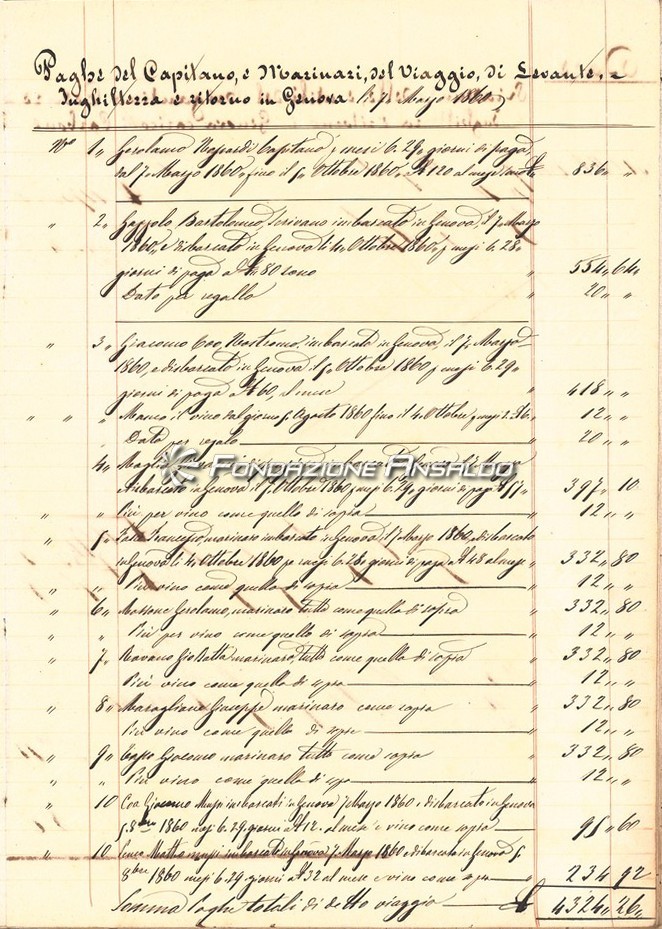 Paghe del Capitano, e Marinari, del Viaggio, di Levante,
Inghilterra e ritorno in Genova li 7 Marzo 1860
No 1 Gerolamo Capitano mesi 6.29 giorni di paga
dal 7 Marzo 1860, fino il 5 Ottobre 1860, a 120 al mese 836 " "
" 2 Bartolomeo, Scrivano imbarcato in Genova, il 7 Marzo
1860, e disbarcato in Genova li 4 Ottobre 1860 mesi 6.28
giorni di paga a 80 sono " 554 " 64
Dato per regallo " 20 " "
" 3 Giacomo Nostromo, imbarcato in Genova, il 7 Marzo
1860, e disbarcato in Genova il 5 Ottobre 1860 mesi 6.29
giorni di paga a 60, al mese " 418 " "
" " " Manca il vino dal giorno 5 Agosto 1860 fino il 4 Ottobre 12 " "
Dato per regalo 20 " "
FONDAZIONE ANSALDO
4 in Genova il 5 Ottobre 1860 mesi 6.29 giorni di paga a 57 397 " 10
" " Più per vino come quello di sopra " 12 " "
" 5 Francesco, marinaro imbarcato in Genova il 7 Marzo 1860, e disbarcato
in Genova li 4 Ottobre 1860 mesi 6.28 giorni di paga a 48 al mese 332 " 80
" " Più vino come quello di sopra " 12 " "
" 6 Massone Gerolamo, marinaro tutto come quello di sopra " 332 " 80
" Più per vino come quello di sopra " 12 " "
" 7 Gio Batta marinaro, tutto come quello di sopra " 332 " 80
Più vino come quello di sopra " 12 " "
" 8 Maragliano Giuseppe marinaro come sopra " 332 " 80
Più vino come quello di sopra " 12 " "
" 9 Giacomo marinaro tutto come sopra " 332 " 80
" " Più vino come quello di sopra " 12 " "
" 10 Giacomo imbarcato in Genova 7 Marzo 1860 e disbarcato in Genova
5 8bre 1860 mesi 6.29 giorni a 12 al mese e vino come sopra 95 " 60
" 10 imbarcato in Genova 7 Marzo 1860 e disbarcato in Genova 5
8bre 1860 mesi 6.29 giorni a 32 al mese e vino come sopra " 234 92
Somma Paghe totali di detto viaggio 4324 " 26 "